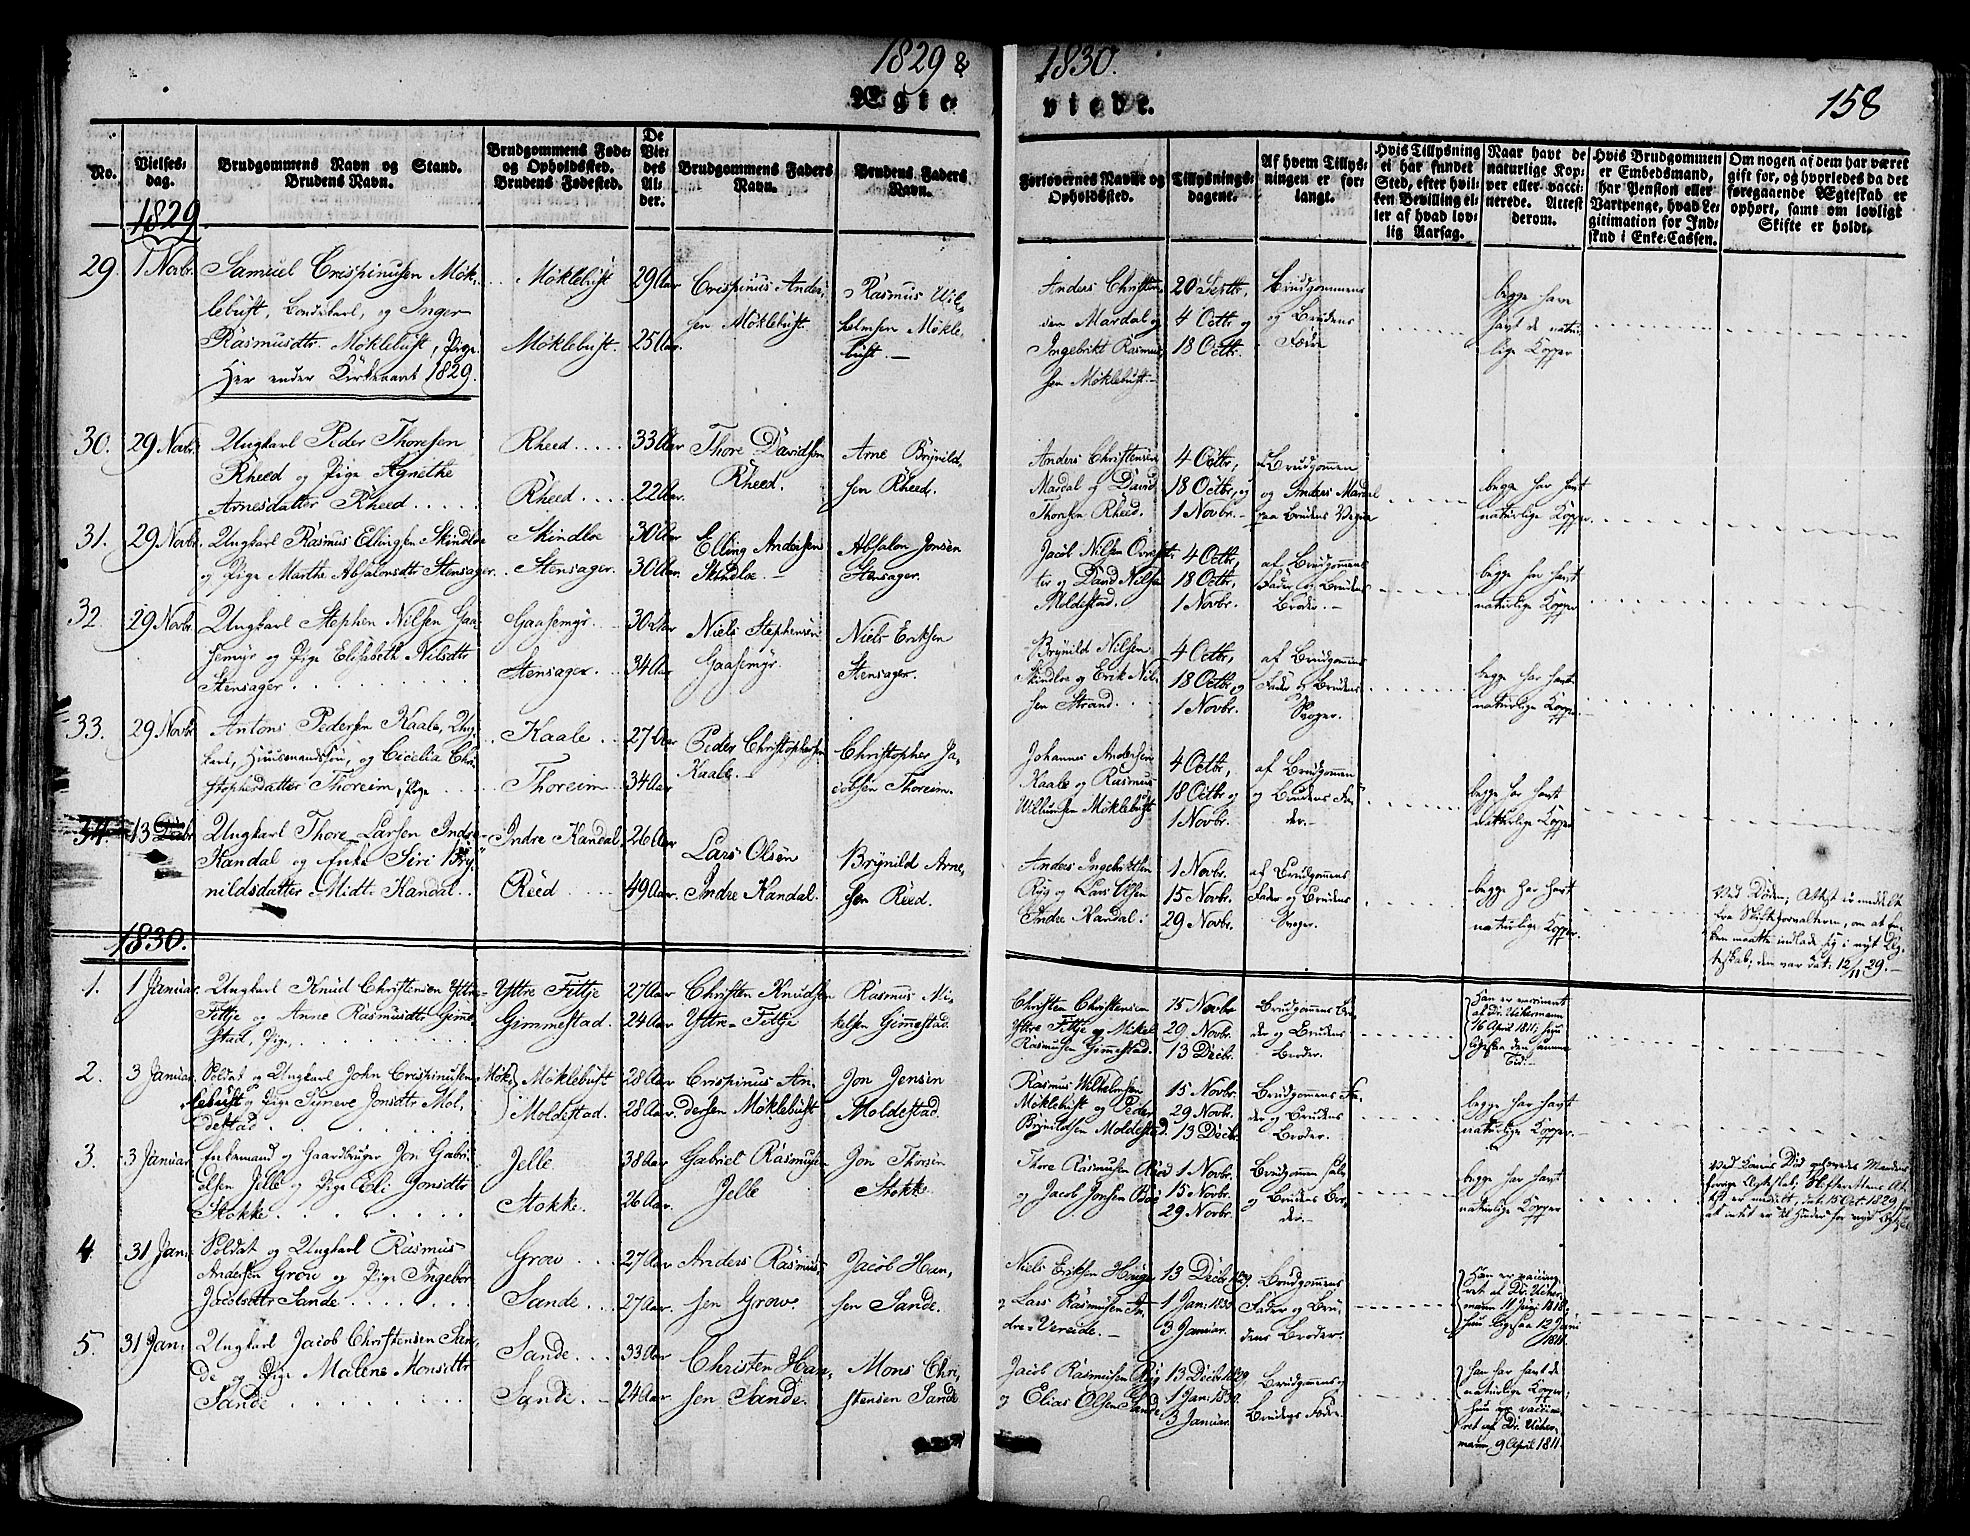 1829 & 1830.
Ægte viede.
158
No.
Vielses-
dag.
Brudgommens Navn og Stand.
Brudens Navn.
Brudgommens Føde-
og Opholdssted.
Brudens Fødested.
De
Vie-
des
Al-
der.
Brudgommens Faders
Navn.
Brudens Faders
Navn.
Forlovernes Navne og
Opholdssted.
Tillysnings-
dagene.
Af hvem Tillys-
ningen er for-
langt.
Hvis Tillysning
ei har fundet
Sted, efter hvil-
ken Bevilling el-
ler af hvad lov-
lig Aarsag.
Naar havt de
naturlige Kop-
per eller vacci-
nerede. Attest
derom.
Hvis Brudgommen
er Embedsmand,
har Pension eller
Vartpenge, hvad Le-
gitimation for Ind-
skud i Enke-Cassen.
Om nogen af dem har været
gift før, og hvorledes da det
foregaaende Ægteskab er
ophørt, samt om lovligt
Skifte er holdt.
1829.
29. 1 Novbr.
Samuel Crispinusen Møk-
lebust, Landskarl, og Inger
Rasmusdtr. Møklebust, Pige.
Her ender Kirkeaaret 1829.
Møklebust
Møklebust.
29 Aar
25 Aar.
Crispinus Ander-
sen Møklebust.
Rasmus Wil-
helmsen Møkle-
bust.
Anders Christen-
sen Mardal og
Ingebrikt Rasmus-
sen Møklebust.
20 Septbr,
4 Octbr og
18 Octbr.
Brudgommens
og Brudens
Fædre
begge have
havt de natur-
lige Kopper
30. 29 Novbr.
Ungkarl Peder Thoresen
Rheed og Pige Agnethe
Arnesdatter Rheed
Rheed
Rheed
33 Aar
22 Aar.
Thore Davidsen
Rheed.
Arne Brynild-
sen Rheed.
Anders Christensen
Mardal og David
Thoresen Rheed.
4 Octbr,
18 Octbr, og
1 Novbr.
Brudgommen
og Anders Mardal
paa Brudens Vegne
begge har havt
naturlige Kopper.
31. 29 Novbr.
Ungkarl Rasmus Ellingsen Skindloe
og Pige Marthe Absalonsdtr Stensager.
Skindloe
Stensager.
30 Aar
30 Aar.
Elling Andersen
Skindloe.
Absalon Jonsen
Stensager.
Jacob Nilsen
og David Nilsen
Moldestad.
4 Octbr,
18 Octbr,
1 Novbr.
af Brudgommens
Fader og Brudens
Broder.
begge har havt
naturlige Kopper.
32. 29 Novbr.
Ungkarl Stephen Nilsen Gaa-
semyr og Pige Elisabeth Nilsdtr
Stensager.
Gaasemyr.
Stensager.
30 Aar
34 Aar
Niels Stephensen
Gaasemyr.
Niels Eriksen
Stensager.
Brynild Nilsen
Skindloe og Erik Nil-
sen Strand.
4 Octbr,
18 Octbr, og
1 Novbr.
af Brudgommens
Fader og Brudens
Svoger.
begge har havt
naturlige Kopper.
33. 29 Novbr
Antons Pedersen Kaale, Ung-
karl, Huusmandssøn, og Cicelia Chri-
stophersdatter Thoreim, Pige
Kaale
Thoreim
27 Aar
34 Aar
Peder Christophersen
Kaale.
Christopher Ja-
cobsen Thoreim.
Johannes Andersen
Kaale og Rasmus
Willumsen Møklebust
4 Octbr,
18 Octbr og
1 Novbr.
af Brudgommen
og Brudens Fa-
der.
begge har havt
naturlige Kopper.
34. 13 Decbr
Ungkarl Thore Larsen Indre-
Kandal og Enke Siri Bry-
nildsdatter Midt-Kandal.
Indre Kandal,
Reed
26 Aar
49 Aar.
Lars Olsen
Indre Kandal.
Brynild Arne-
sen Reed.
Anders Ingebrigtsen
Ryg og Lars Olsen
Indre Kandal.
1 Novbr.
15 Novbr.
29 Novbr.
af Brudgommens
Fader og Brudens
Svoger.
begge har havt
naturlige Kopper.
Ved Døden; Attest er meddelt
fra Skifteforvalteren, om at En-
ken maatte indlade sig i nyt Æg-
teskab; den var dat. 12/11 29.
1830.
1. 1 Januar.
Ungkarl Knud Christensen Yttre-
Fittje og Anne Rasmusdtr Gimme-
stad, Pige,
Yttre Fittje
Gimmestad.
27 Aar
24 Aar.
Christen Knudsen
Yttre-Fittje
Rasmus Mi-
kelsen Gimmestad.
Christen Christensen
Yttre Fittje og Mikel
Rasmusen Gimmestad.
15 Novbr
29 Novbr.
13 Decbr.
Brudgommens Bro-
der og Brudens
Broder.
Han er vaccineret
af Dr. Uckermann
16 April 1811; hun
ligesaa den samme
Tid.
2. 3 Januar.
Soldat og Ungkarl John Crispinusen Møk-
lebust og Pige Synneve Jonsdtr Mol-
destad
Møklebust
Moldestad.
28 Aar
28 Aar.
Crispinus An-
dersen Møklebust
Jon Jensen
Moldestad.
Rasmus Wilhelmsen
Møklebust og Peder
Brynildsen Moldestad.
15 Novbr.
29 Novbr.
13 Decbr.
Brudgommens Fa-
der og Brudens
Broder.
begge har havt
naturlige Kopper.
3. 3 Januar
Enkemand og Gaardbruger Jon Gabri-
elsen Jelle og Pige Eli Jonsdtr
Stokke
Jelle
Stokke.
38 Aar
26 Aar.
Gabriel Rasmusen
Jelle
Jon Thorsen
Stokke.
Thore Rasmusen Reed
og Jacob Jonsen Bøe
1 Novbr.
15 Novbr.
29 Novbr.
Brudgommen selv
og Brudens Bro-
der.
begge har havt
naturlige Kopper
Ved Konens Død ophævedes Mandens
forrige Ægteskab; Skifterettens At-
test er meddelt, dat. 15 Oct. 1829, for
at intet er til Hinder for nyt Ægtesk.
4 31 Jan.
Soldat og Ungkarl Rasmus
Andersen Grow og Pige Ingebor
Jacobsdtr Sande
Grow
Sande
27 Aar
27 Aar.
Anders Rasmus-
sen Grow.
Jacob Han-
sen Sande.
Niels Eriksen Houge
og Lars Rasmusen In-
dre-Vereide.
13 Decbr. 1829.
1 Jan: 1830
3 Januar.
Brudgommens
Fader og Bru-
dens Broder.
Han er vaccine-
ret af Dr. Ucher-
mann 11 Juni 1818;
hun ligesaa 12 Juni
1811.
5. 31 Jan.
Ungkarl Jacob Christensen San-
de og Pige Malene Monsdtr
Sande
Sande
Sande.
33 Aar
24 Aar.
Christen Han-
sen Sande.
Mons Chri-
stensen Sande
Jacob Rasmusen Ryg
og Elias Olsen Sande
13 Decbr. 1829
1 Jan: 1830.
3 Januar.
Brudgommens og
Brudens Fædre.
Han har havt de
naturlige Kopper;
hun er vaccine-
ret af Dr. Ucher-
mann, 9 April 1811.